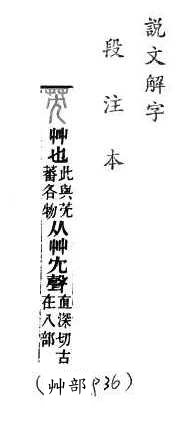 說文解字
段注本
艸也此與芫蕃各物从艸冘聲直深切古在八部
(艸部p36)